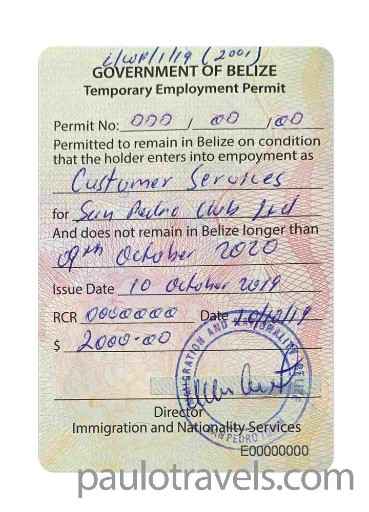 i/WP/1/19 (2001)
GOVERNMENT OF BELIZE
Temporary Employment Permit
Permit No: 000 / 00 / 00
Permitted to remain in Belize on condition
that the holder enters into empoyment as
Customer Services
for San Pedro Club Ltd
And does not remain in Belize longer than
09th October 2020
Issue Date 10 October 2019
RCR 0000000 Date 10/10/19
$ 2000-00
IMMIGRATION AND NATIONALITY BELIZE
SAN PEDRO TOWN
Director
Immigration and Nationality Services
E00000000
paulotravels.com